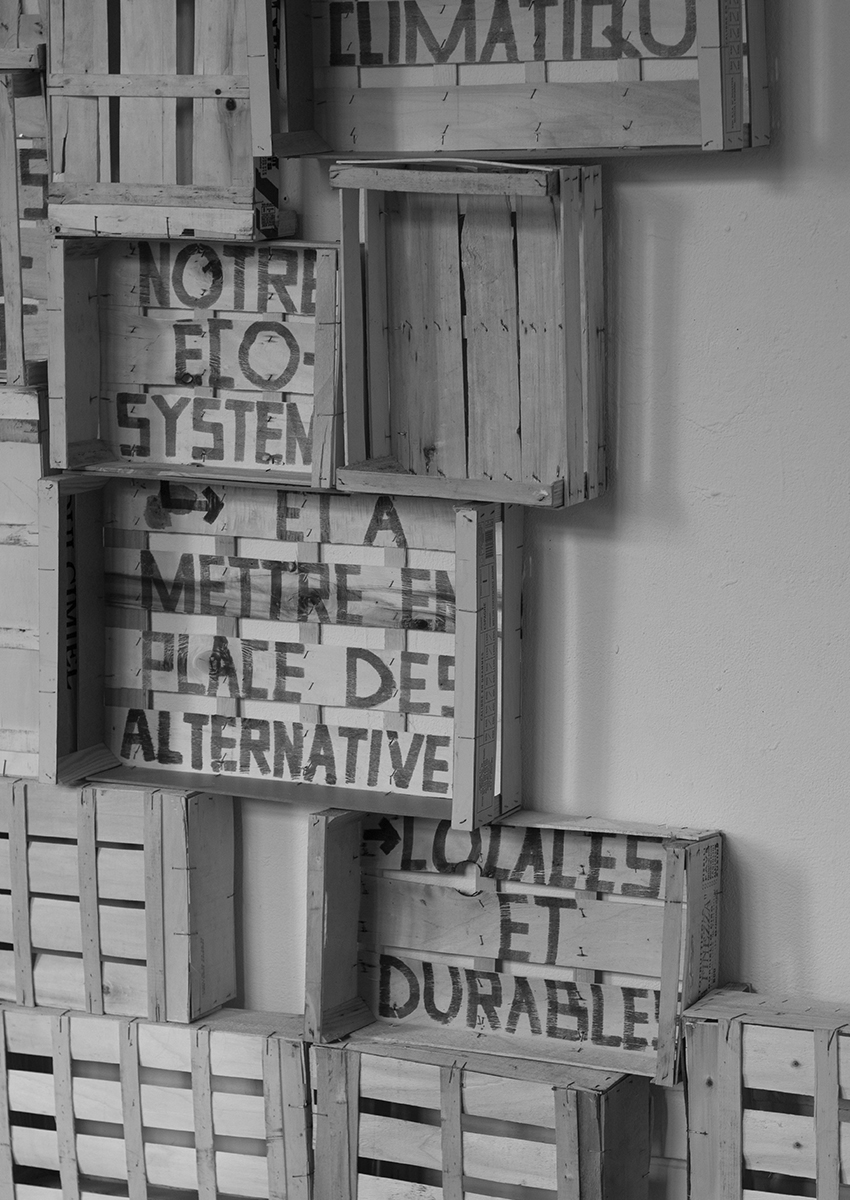 CLIMATIQU
NOTRE
ECO-
SYSTEM
→ ET A
METTRE EN
PLACE DES
ALTERNATIVE
→LOCALES
ET
DURABLE